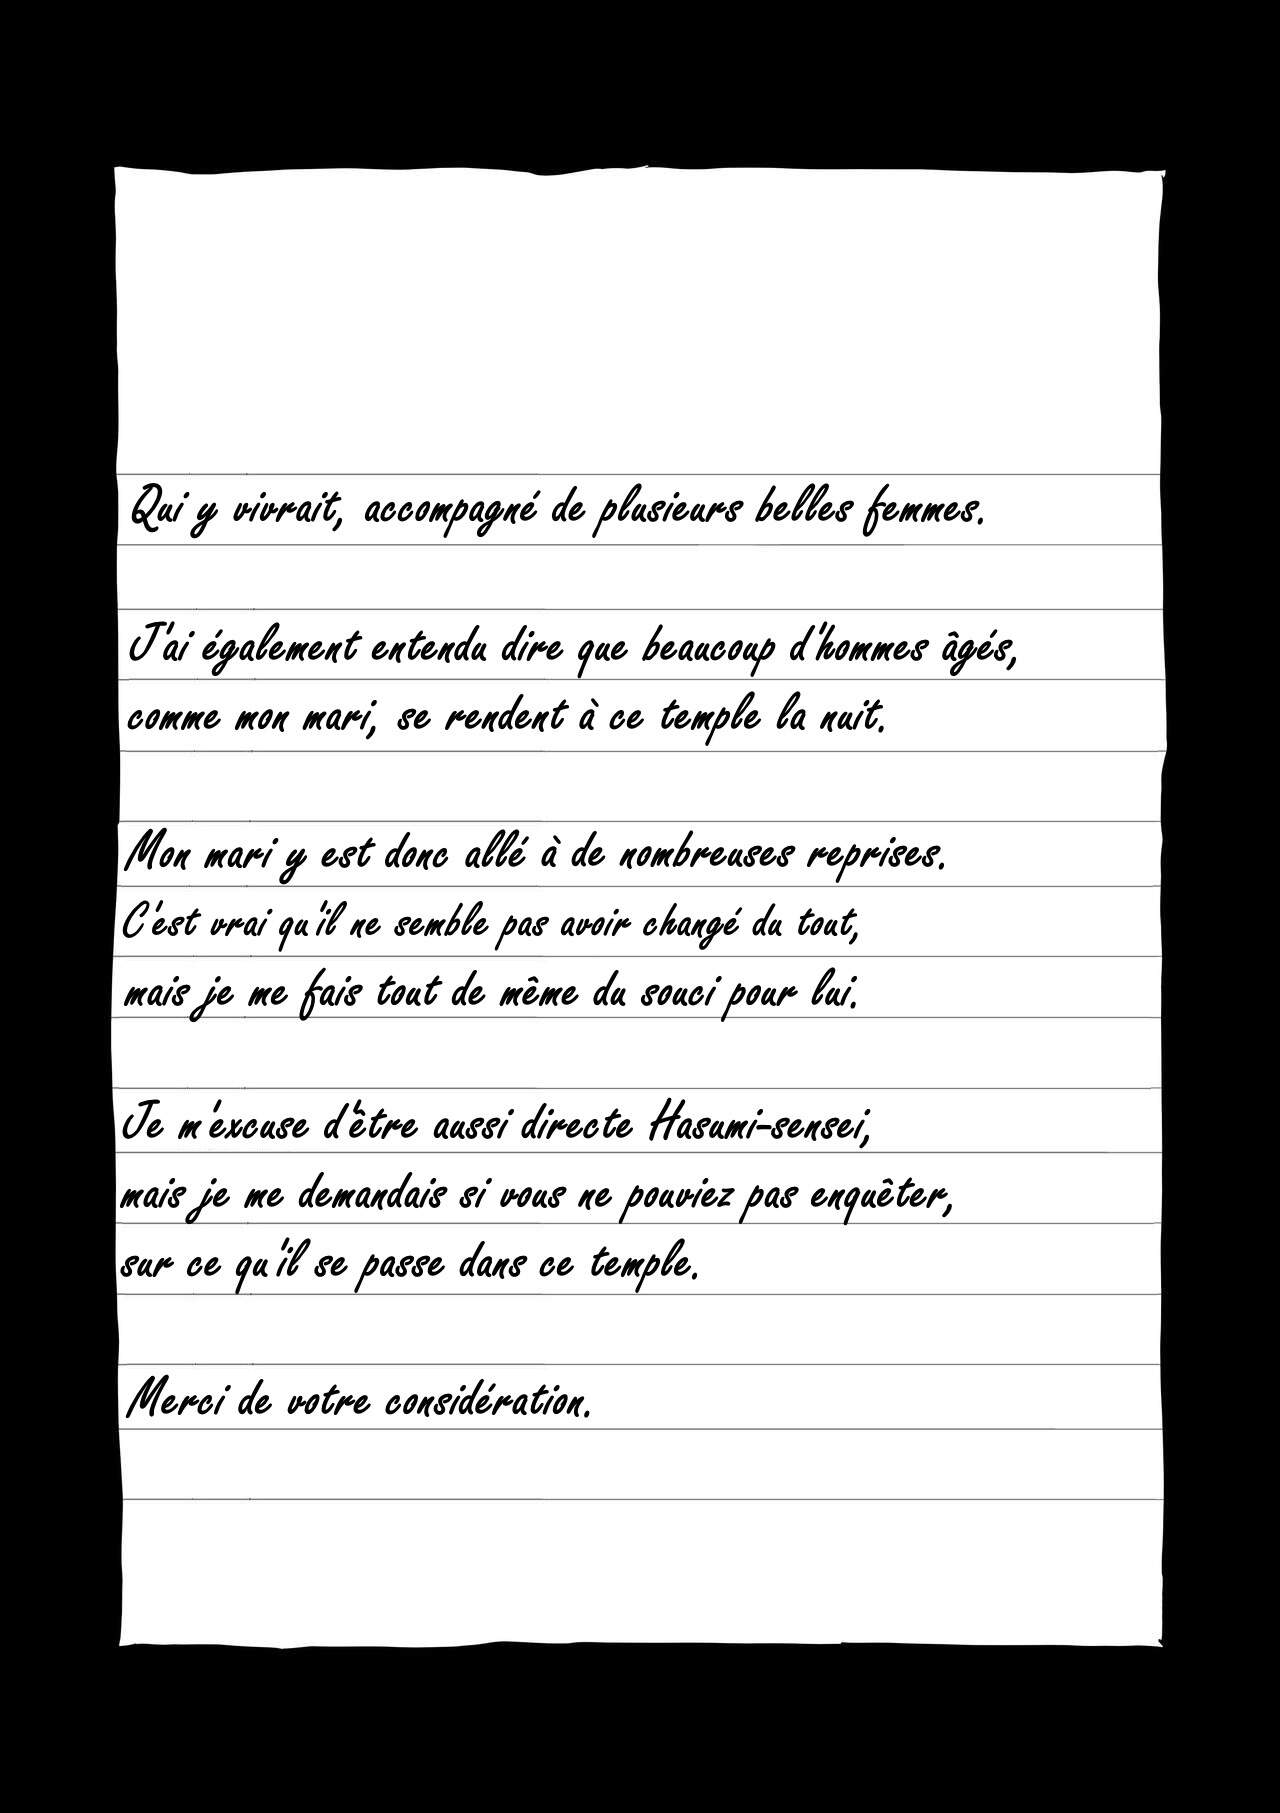 Qui y vivrait, accompagné de plusieurs belles femmes.
J'ai également entendu dire que beaucoup d'hommes âgés,
comme mon mari, se rendent à ce temple la nuit.
Mon mari y est donc allé à de nombreuses reprises.
C'est vrai qu'il ne semble pas avoir changé du tout,
mais je me fais tout de même du souci pour lui.
Je m'excuse d'être aussi directe Hasumi-sensei,
mais je me demandais si vous ne pouviez pas enquêter,
sur ce qu'il se passe dans ce temple.
Merci de votre considération.